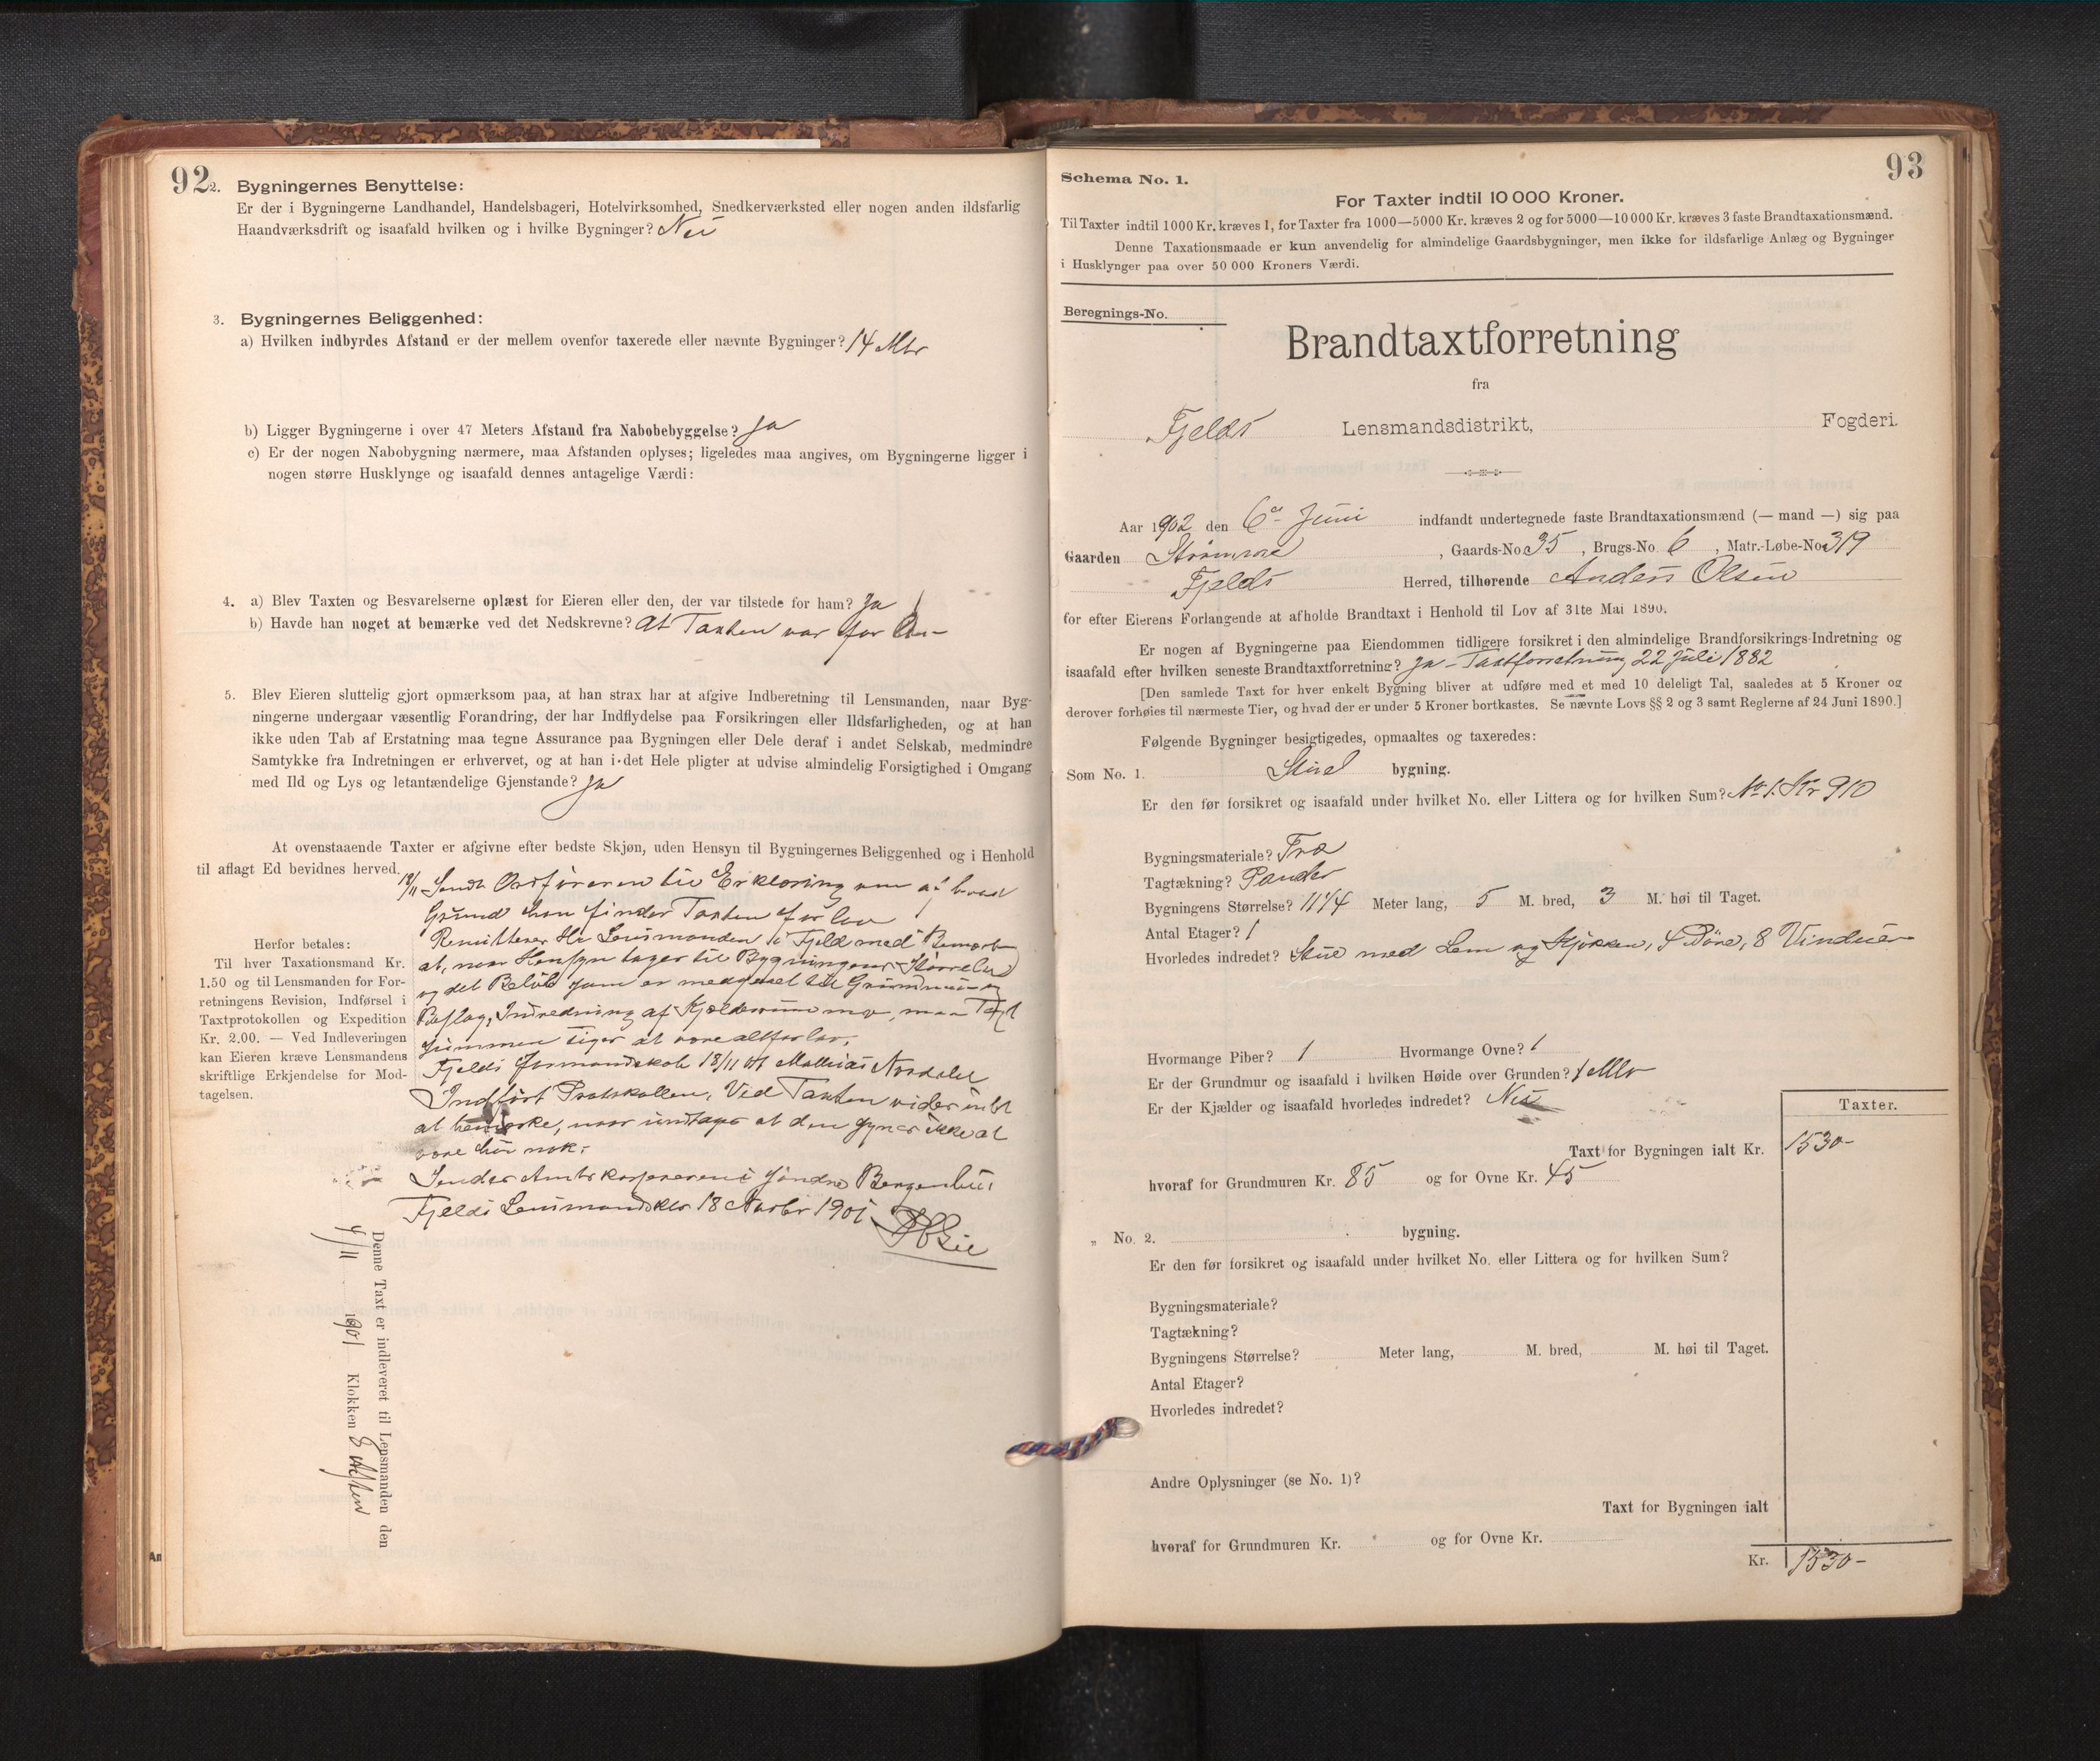 92
2. Bygningernes Benyttelse:
Er der i Bygningerne Landhandel, Handelsbageri, Hotelvirksomhed, Snedkerværksted eller nogen anden ildsfarlig
Haandværksdrift og isaafald hvilken og i hvilke Bygninger? Nei
3. Bygningernes Beliggenhed:
a) Hvilken indbyrdes Afstand er der mellem ovenfor taxerede eller nævnte Bygninger? 14 Mtr
b) Ligger Bygningerne i over 47 Meters Afstand fra Nabobebyggelse? Ja
c) Er der nogen Nabobygning nærmere, maa Afstanden oplyses; ligeledes maa angives, om Bygningerne ligger i
nogen større Husklynge og isaafald dennes antagelige Værdi:
4. a) Blev Taxten og Besvarelserne oplæst for Eieren eller den, der var tilstede for ham? Ja
b) Havde han noget at bemærke ved det Nedskrevne? At Taxten var for lav
5. Blev Eieren sluttelig gjort opmærksom paa, at han strax har at afgive Indberetning til Lensmanden, naar Byg-
ningerne undergaar væsentlig Forandring, der har Indflydelse paa Forsikringen eller Ildsfarligheden, og at han
ikke uden Tab af Erstatning maa tegne Assurance paa Bygningen eller Dele deraf i andet Selskab, medmindre
Samtykke fra Indretningen er erhvervet, og at han i det Hele pligter at udvise almindelig Forsigtighed i Omgang
med Ild og Lys og letantændelige Gjenstande? Ja
At ovenstaaende Taxter er afgivne efter bedste Skjøn, uden Hensyn til Bygningernes Beliggenhed og i Henhold
til aflagt Ed bevidnes herved.
18/11 Sendt Ordføreren til Erklæring om af hvad
Grund han finder Taxten for lav
Remitteres Hr Lensmanden i Fjeld med Bemærkn
at, naar Hensyn tages til Bygningens Størrelse
og det Beløb som er medgaaet til Grundmur og
Indredning af Kjælderrum mv, maa Taxt
summen siges at være altfor lav.
Fjelds Formandskab 18/11 01 Mathias Nordalet
Indført Protokollen. Ved Taxten vides intet
at bemærke, naar undtages at den synes ikke at
være høi nok.
Sendes Amtskassereren i Søndre Bergenhus
Fjelds Lensmandsktr 18 Novbr 1901
Herfor betales:
Til hver Taxationsmand Kr.
1.50 og til Lensmanden for For-
retningens Revision, Indførsel i
Taxtprotokollen og Expedition
Kr. 2.00. — Ved Indleveringen
kan Eieren kræve Lensmandens
skriftlige Erkjendelse for Mod-
tagelsen.
Denne Taxt er indleveret til Lensmanden den
4/11 1901 Klokken 8 Aften
93
Schema No. 1.
For Taxter indtil 10 000 Kroner.
Til Taxter indtil 1000 Kr. kræves 1, for Taxter fra 1000—5000 Kr. kræves 2 og for 5000—10 000 Kr. kræves 3 faste Brandtaxationsmænd.
Denne Taxationsmaade er kun anvendelig for almindelige Gaardsbygninger, men ikke for ildsfarlige Anlæg og Bygninger
i Husklynger paa over 50 000 Kroners Værdi.
Beregnings-No.
Brandtaxtforretning
fra
Fjelds Lensmandsdistrikt, Fogderi.
Aar 1902 den 6te Juni indfandt undertegnede faste Brandtaxationsmænd (— mand —) sig paa
Gaarden , Gaards-No. 35 , Brugs-No. 6 , Matr.-Løbe-No. 319
Fjelds Herred, tilhørende Anders Olsen
for efter Eierens Forlangende at afholde Brandtaxt i Henhold til Lov af 31te Mai 1890.
Er nogen af Bygningerne paa Eiendommen tidligere forsikret i den almindelige Brandforsikrings-Indretning og
isaafald efter hvilken seneste Brandtaxtforretning? Ja - Taxtforretning 22 Juli 1882
[Den samlede Taxt for hver enkelt Bygning bliver at udføre med et med 10 deleligt Tal, saaledes at 5 Kroner og
derover forhøies til nærmeste Tier, og hvad der er under 5 Kroner bortkastes. Se nævnte Lovs §§ 2 og 3 samt Reglerne af 24 Juni 1890.]
Følgende Bygninger besigtigedes, opmaaltes og taxeredes:
Som No. 1. bygning.
Er den før forsikret og isaafald under hvilket No. eller Littera og for hvilken Sum? No 1. Kr 910
Bygningsmateriale? Træ
Tagtækning? Pander
Bygningens Størrelse? 11 1/4 Meter lang, 5 M. bred, 3 M. høi til Taget.
Antal Etager? 1
Hvorledes indredet? Stue med Lem og Kjøkken, 5 Døre, 8 Vinduer
Hvormange Piber? 1 Hvormange Ovne? 1
Er der Grundmur og isaafald i hvilken Høide over Grunden? 1 Mtr
Er der Kjælder og isaafald hvorledes indredet? Nei
Taxter.
Taxt for Bygningen ialt Kr. 1530-
hvoraf for Grundmuren Kr. 85 og for Ovne Kr. 45
„ No. 2. bygning.
Er den før forsikret og isaafald under hvilket No. eller Littera og for hvilken Sum?
Bygningsmateriale?
Tagtækning?
Bygningens Størrelse? Meter lang, M. bred, M. høi til Taget.
Antal Etager?
Hvorledes indredet?
Andre Oplysninger (se No. 1)?
Taxt for Bygningen ialt
hvoraf for Grundmuren Kr. og for Ovne Kr.
Kr. 1530-